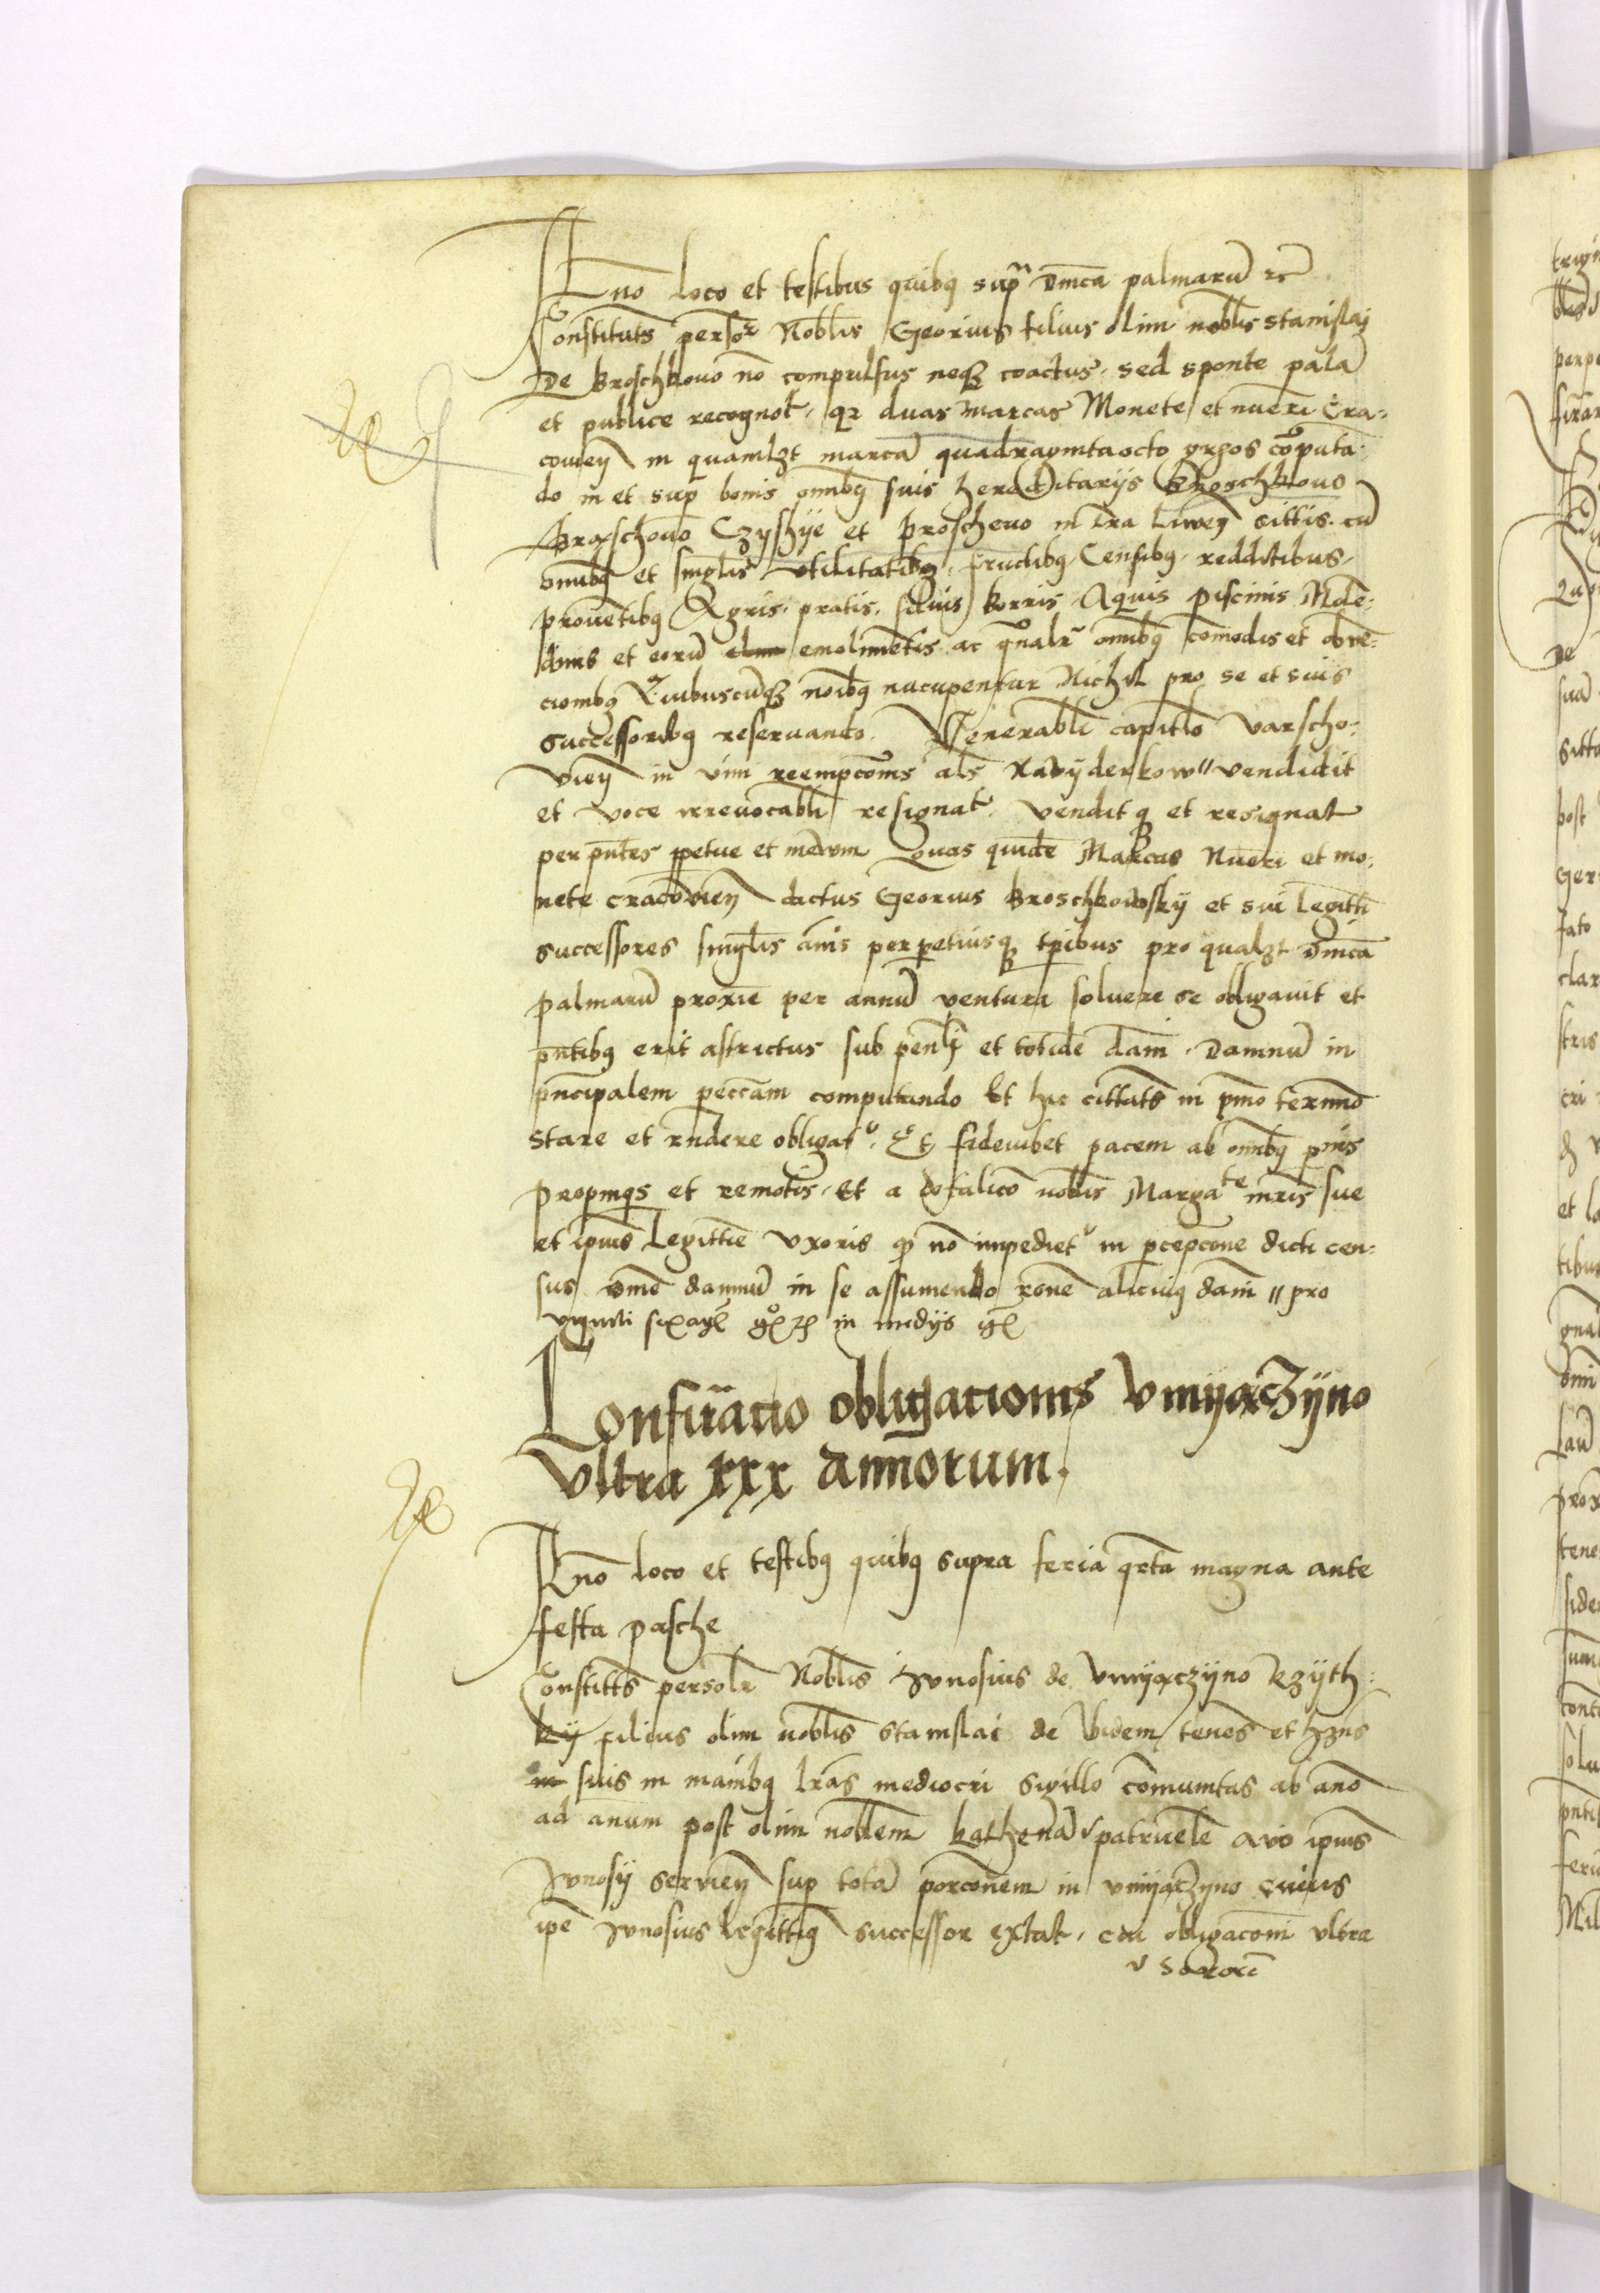 Anno loco et testibus quibus supra dnica palmaru etc
Constituts persolr Nobilis Georius filius olim nobilis Stanislaj
De Broschkouo no compulsus neqz coactus sed sponte pala
et publice recognot qz duas marcas Monete et nueri Cra-
couien in quamlzt marca quadragintaocto grzos coputa-
do in et sup bonis omibus suis hereditariis Broschkouo
Brzoschouo Czyssye et proschevo in tra liwen sittis cu
omibus et singlis vtilitatibus fructibus Censibus redditibus
prouetibus Agris pratis siluis borris Aquis piscinis Mole-
dinis et eoru emolimetis ac gnalr omibus comodis et obve-
cionibus Quibuscuqz noibus nucupentur Nichil pro se et suis
successoribus reseruando Venerabli capitlo Varscho-
vien in vim reempcois als Nawyderkow vendidit
et voce irreuocabli resignat vendit qz et resignat
per pntes ppetue et in evum Quas quide Marcas Nueri et mo-
nete cracovien dictus Georius Broschkowsky et sui legitti
successores singlis anis perpetuisqz tpibus pro qualzt dnica
palmaru proxie per annu ventura soluere se obligauit et
pntibus erit astrictus sub penli et totide dani Damnu in
pncipalem peccam computando Et hic cittats in pmo termino
stare et rndere obligat Et fideiubet pacem ab omibus pmis
propinqs et remotis Et a dotalico nobilis Margate mris sue
et ipius legittie vxoris qz no impediet in pcepcone dicti cen-
sus ome damnu in se assumendo rone alicuius dani pro
viginti in medijs
Confirmatio obligationis vmyaczyno
vltra xxx annorum
Anno loco et testibus quibus supra feria qrta magna ante
festa pasche
Constitts persolr Nobilis Junosius de vmyaczyno Rzyth-
ky filius olim nobilis Stanislai de Ibidem tenes et hns
suis in manibus lras mediocri sigillo comunitas ab ano
ad anum post olim nobilem kathena patruele avo ipius
Junosy servien sup tota porconem in vmyaczyno cuius
ipe Junosius legittimus successor extat obligacom vltra
v sorori